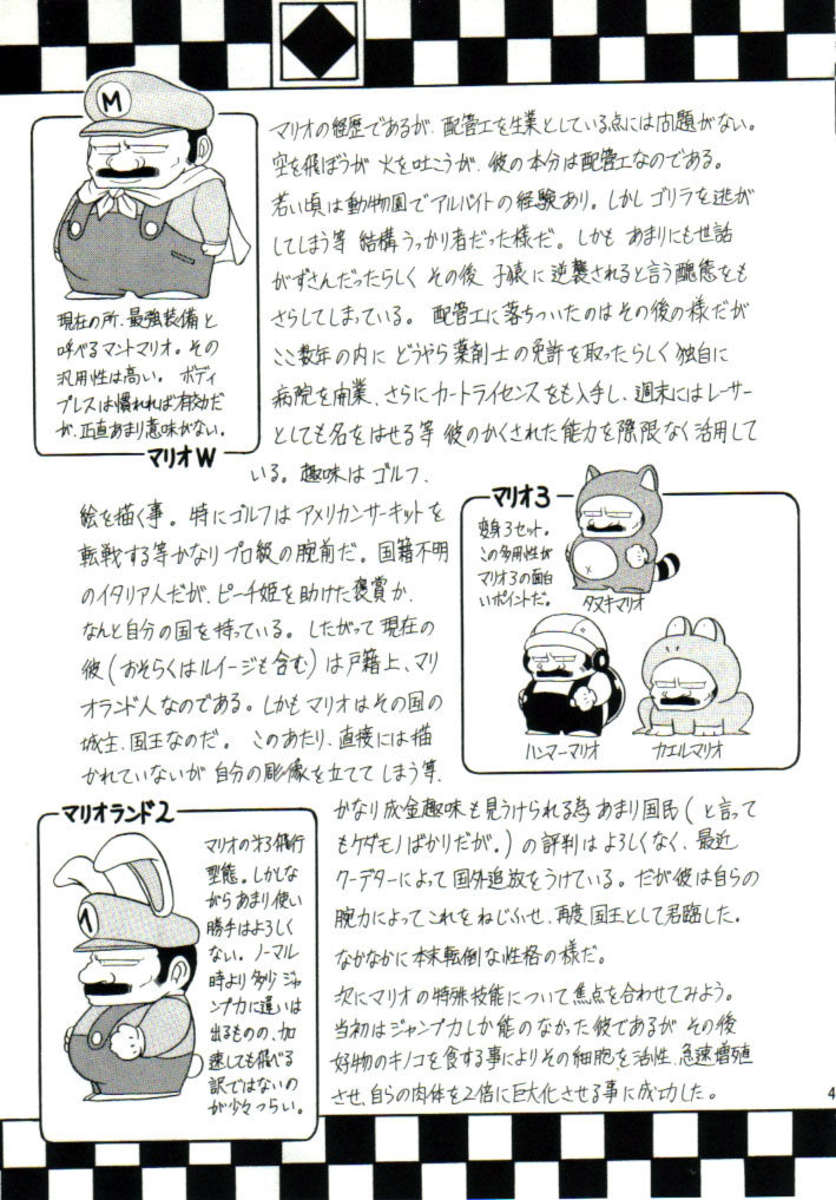 M
マリオの経歴であるが、配管工を生業としている点には問題がない。
空を飛ぼうが 火を吐こうが、彼の本分は配管工なのである。
若い頃は動物園でアルバイトの経験あり。しかし ゴリラを逃が
してしまう等 結構うっかり者だった様だ。しかも あまりにも世話
がずさんだったらしく その後 子猿に逆襲されると言う醜態をも
さらしてしまっている。配管工に落ちついたのはその後の様だが
ここ数年の内に どうやら薬剤士の免許を取ったらしく 独自に
病院を開業、さらにカートライセンスをも入手し、週末にはレーサー
としても名をはせる等 彼のかくされた能力を際限なく活用して
いる。趣味はゴルフ、
現在の所、最強装備と
呼べるマントマリオ。その
汎用性は高い。ボディ
プレスは慣れれば有効だ
が、正直あまり意味がない。
マリオW
絵を描く事。特にゴルフは アメリカンサーキットを
転戦する等かなり プロ級の腕前だ。国籍不明
のイタリア人だが、ピーチ姫を助けた褒賞か、
なんと自分の国を持っている。したがって現在の
彼(おそらくはルイージも含む)は戸籍上、マリ
オランド人なのである。しかもマリオはその国の
城主、国王なのだ。このあたり、直接には描
かれていないが 自分の彫像を立ててしまう等、
マリオ3
変身3セット。
この多用性が
マリオ3の面白
いポイントだ。
タヌキマリオ
ハンマーマリオ
カエルマリオ
かなり成金趣味も見うけられる為 あまり国民(と言って
もケダモノばかりだが。)の評判はよろしくなく、最近
クーデターによって国外追放をうけている。だが彼は自らの
腕力によってこれをねじふせ、再度国王として君臨した。
なかなかに本末転倒な性格の様だ。
次にマリオの特殊技能について焦点を合わせてみよう。
当初はジャンプ力しか能のなかった彼であるが その後
好物のキノコを食する事によりその細胞を活性、急速増殖
させ、自らの肉体を2倍に巨大化させる事に成功した。
マリオランド2
マリオの第3飛行
型態。しかしな
がらあまり使い
勝手はよろしく
ない。ノーマル
時より多少ジャ
ンプ力に違いは
出るものの、加
速しても飛べる
訳ではないの
が少々つらい。
M
4